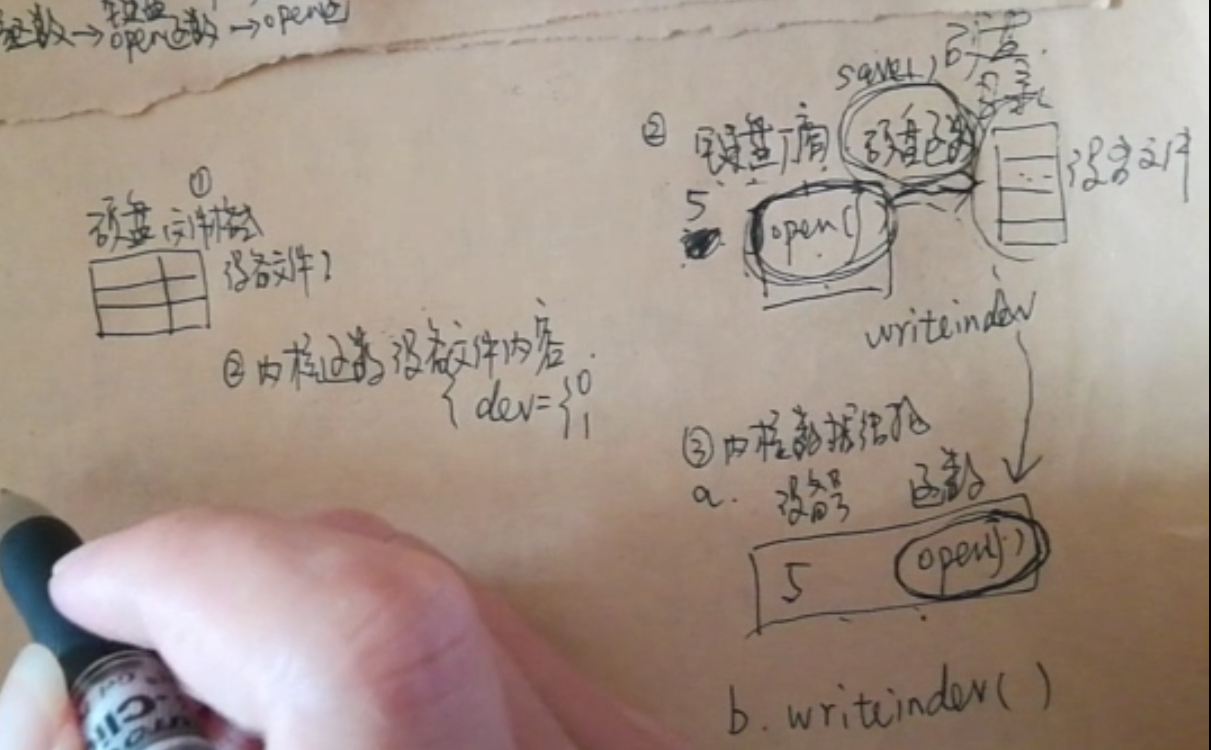 函数→键盘open函数→open函
①
硬盘文件格式
设备文件1
②内核函数设备文件内容
{ dev={0
1
save1,
②
键盘厂商
硬盘函数
目录
设备文件
5
open()
writeindev
③内核数据结构
a. 设备号 函数
5 open()
b. writeindev()